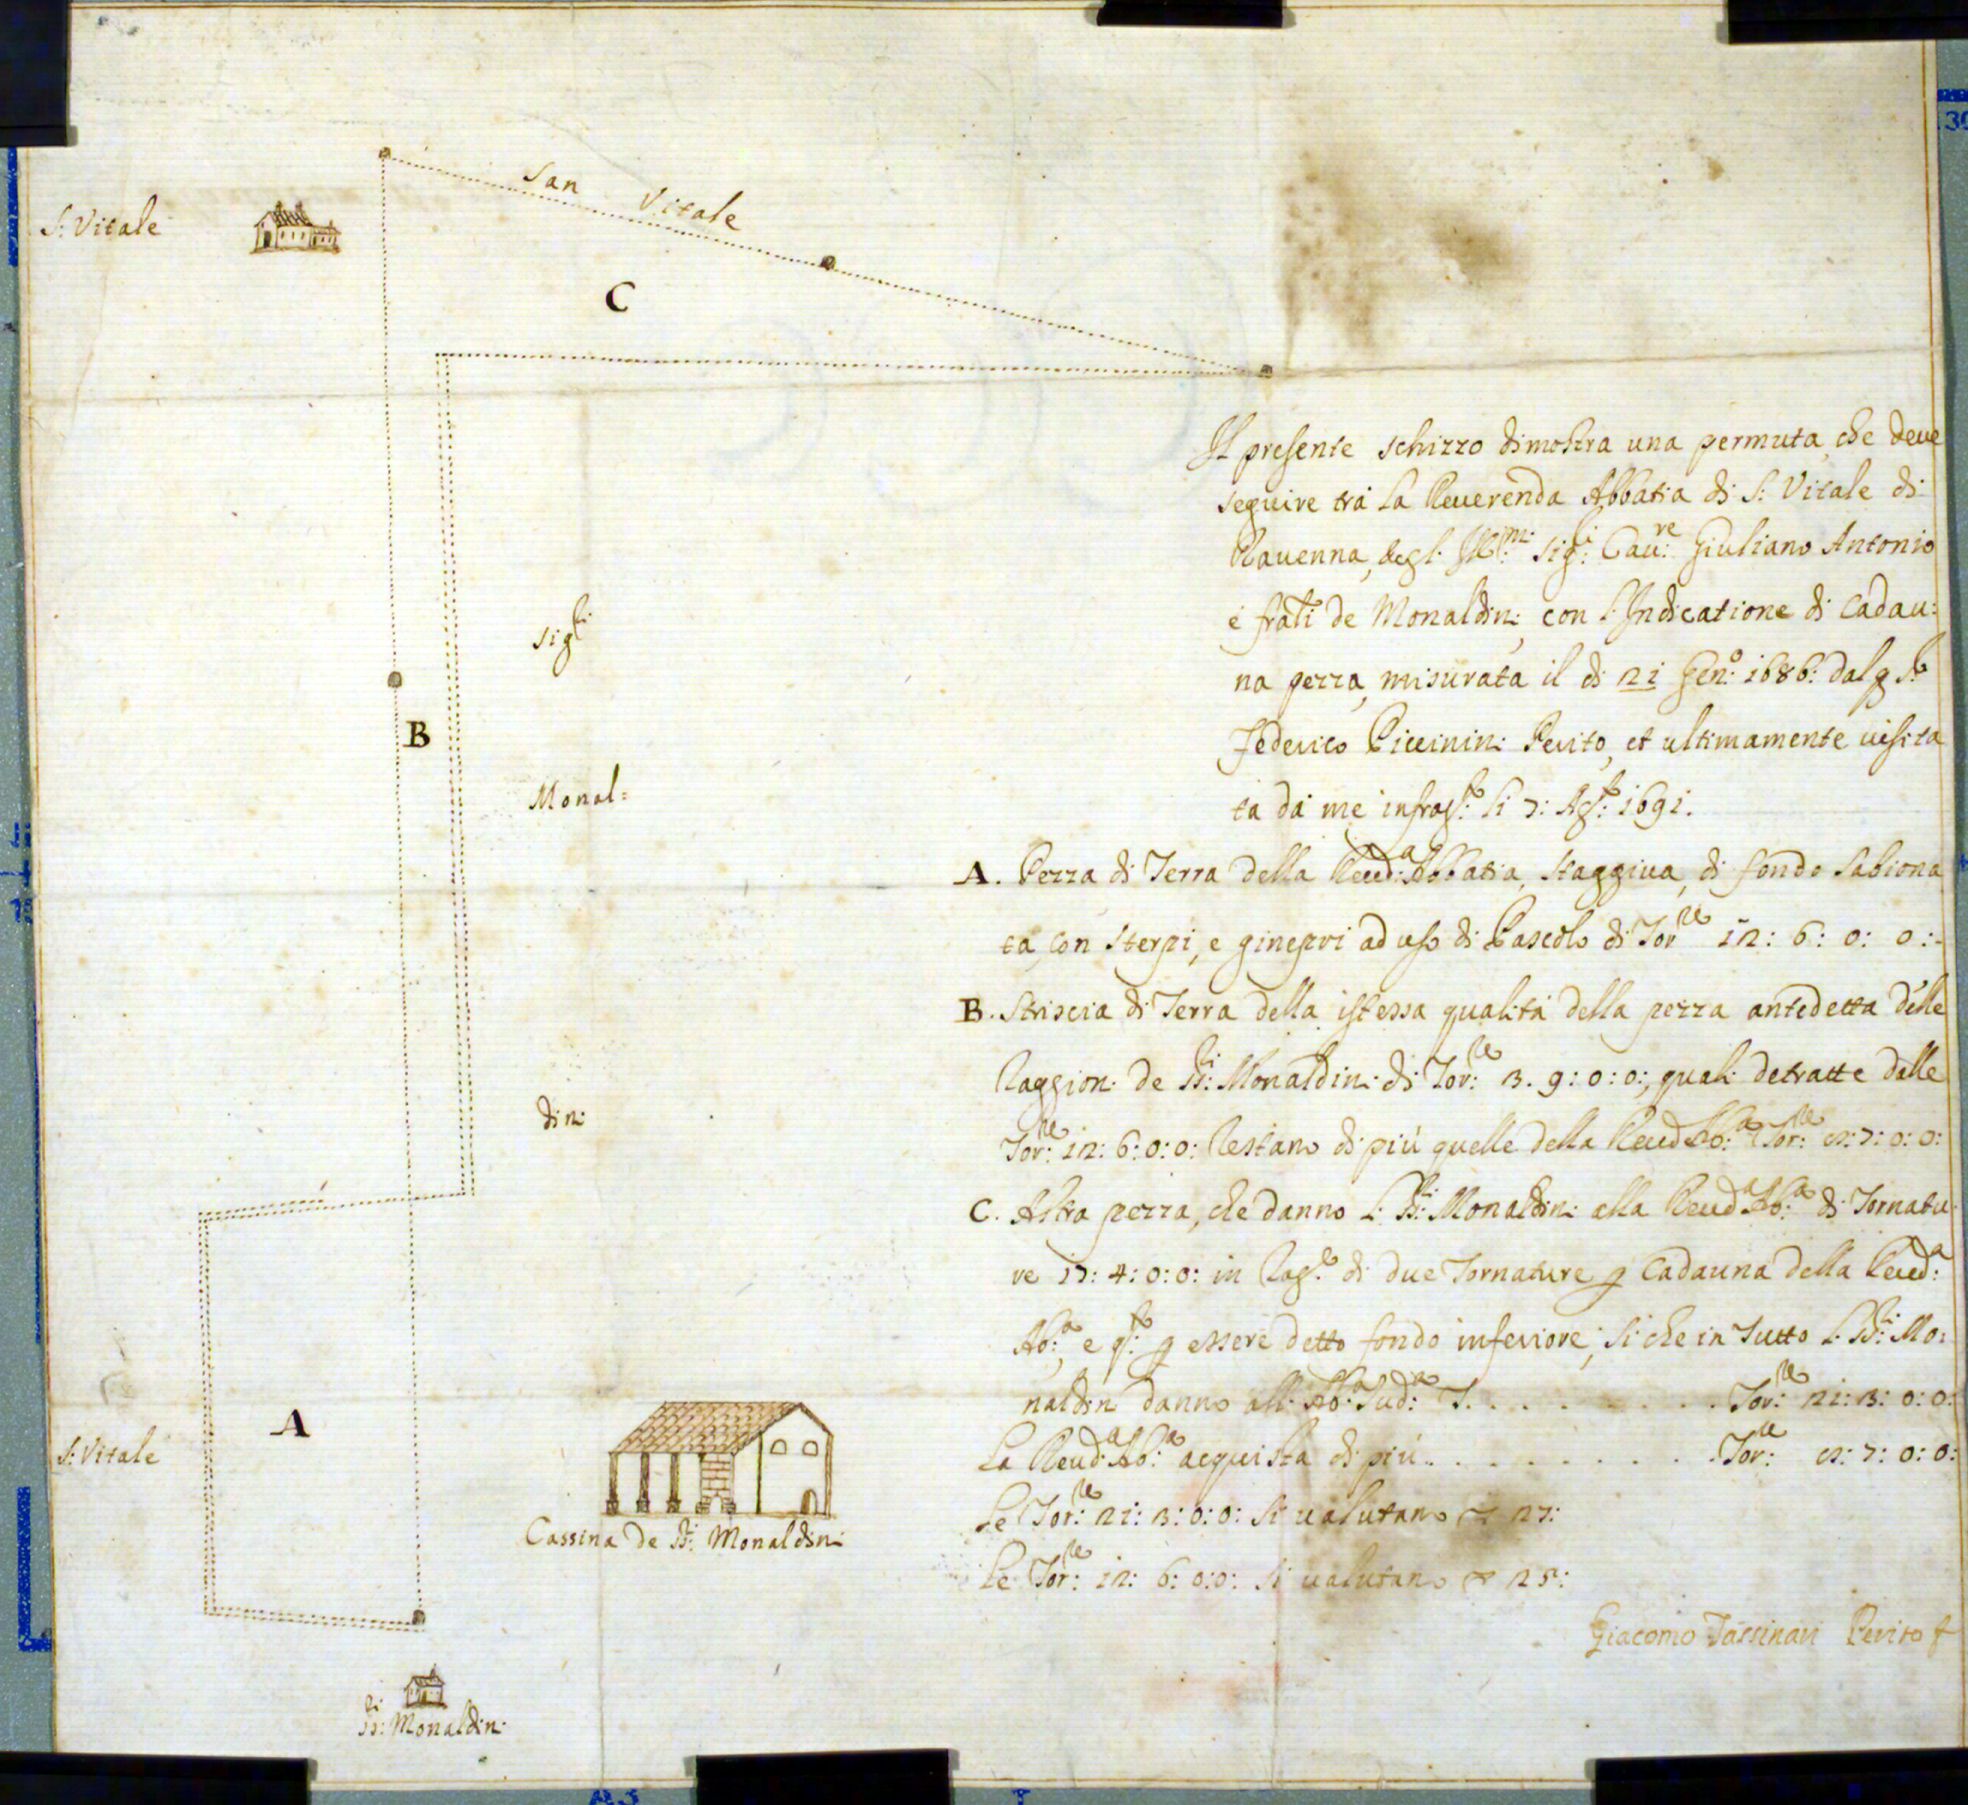 San Vitale
S: Vitale
C
Il presente schizzo dimostra una permuta, che deue
seguire trà la Reuerenda Abbatia di S: Vitale di
Rauenna, degl' Ill.mi Sig.ri Cau.re Giuliano Antonio
é frati de Monaldini con l'Indicatione di cadau:
na pezza, misurata il di 21 Gen.o 1686: dal q S.r
Federico Piccinini Perito, et ultimamente uisita
ta da me infras.to li 7: Ag.to 1691.
Sig.ri
B
Monal:
dini
A. Pezza di Terra della Reud.a Abbatia, staggiua, di fondo Sabiona
ta, con sterpi, e ginepri ad uso di Pascolo di Tor.re 12: 6: 0: 0:
B. Striscia di Terra della istessa qualità della pezza antedetta delle
Raggioni de SS.ri Monaldini di Tor.re 3. 9: 0: 0:, quali detratte dalle
Tor.re 12: 6: 0: 0: Restano di più quelle della Reud Ab.a Tor.re 8: 7: 0: 0:
C. Altra pezza, che danno li SS.ri Monaldini alla Reud.a Ab.a di Tornatu
re 17: 4: 0: 0: in Rag.e di due Tornature p cadauna della Reud.a
Ab.a, e q.to p essere detto fondo inferiore; Si che in Tutto li SS.ri Mo:
naldini danno all' Ab.a Sud.a T. . . . . . . . . Tor.re 21: 3: 0: 0:
La Reud.a Ab.a acquista di più . . . . . . . . . Tor.re 8: 7: 0: 0:
Le Tor.re 21: 3: 0: 0: si ualutano 27:
Le Tor.re 12: 6: 0: 0: si ualutano 25:
Giacomo Tassinari Perito f
A
S: Vitale
Cassina de SS.ri Monaldini
SS.ri Monaldini